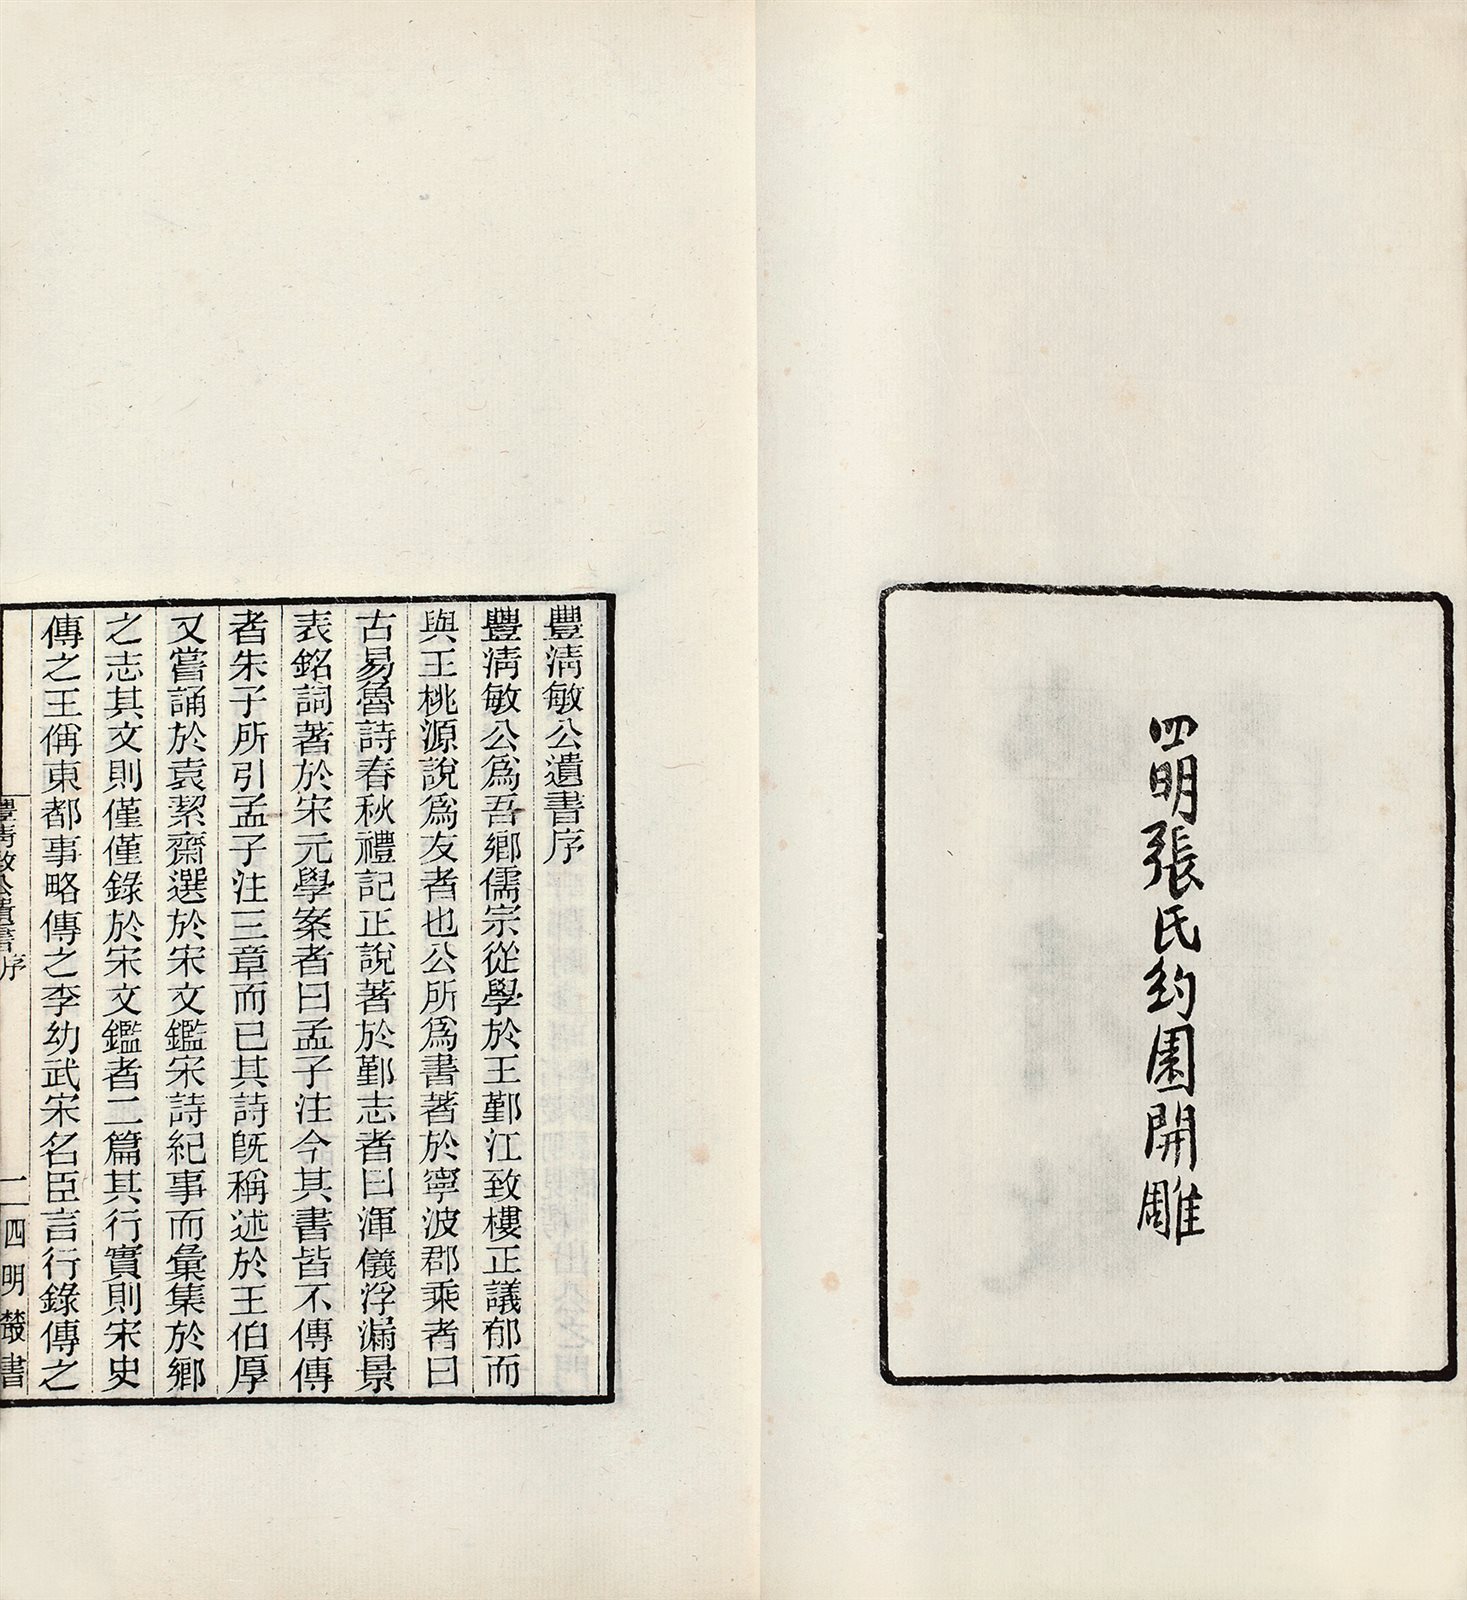 四明張氏約園開雕
豐清敏公遺書序
豐清敏公爲吾鄉儒宗從學於王鄞江致樓正議郁而
與王桃源說爲友者也公所爲書著於寧波郡乘者曰
古易魯詩春秋禮記正說著於鄞志者曰渾儀浮漏景
表銘詞著於宋元學案者曰孟子注今其書皆不傳傳
者朱子所引孟子注三章而已其詩旣稱述於王伯厚
又嘗誦於袁絜齋選於宋文鑑宋詩紀事而彙集於鄉
之志其文則僅僅錄於宋文鑑者二篇其行實則宋史
傳之王偁東都事略傳之李幼武宋名臣言行錄傳之
豐清敏公遺書序
一
四明叢書